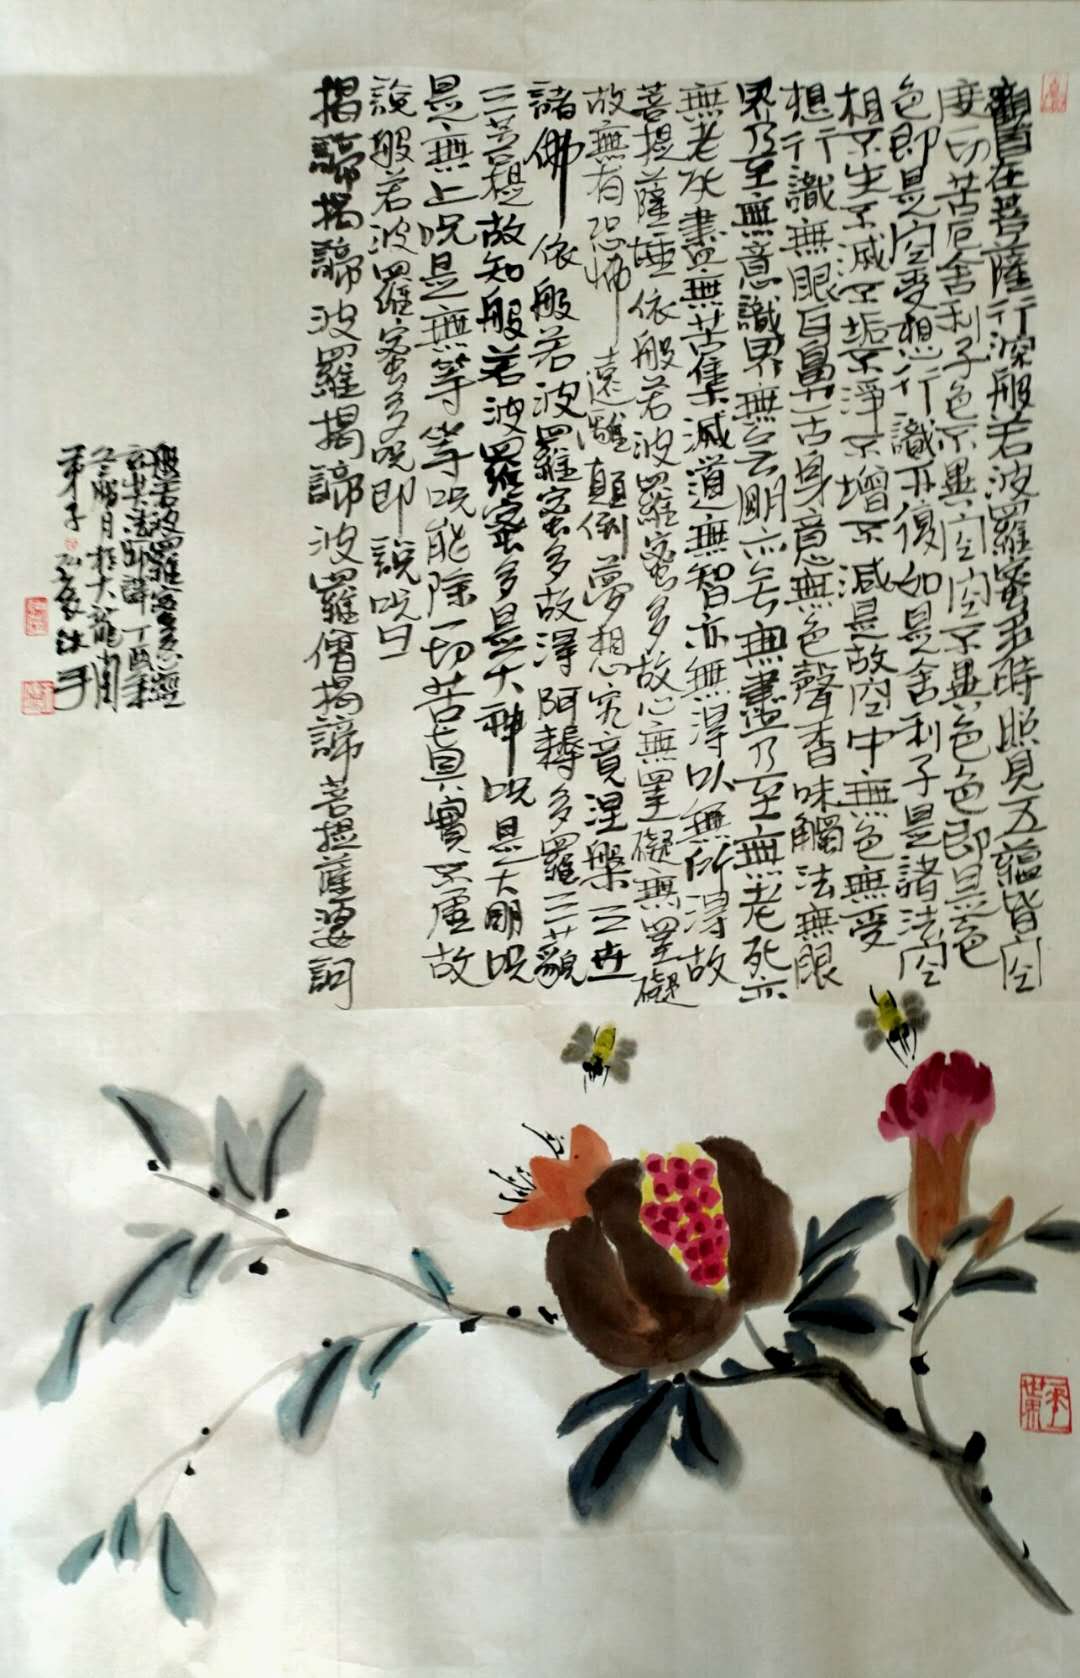 觀自在菩薩行深般若波羅蜜多時照見五蘊皆空
度一切苦厄舍利子色不異空空不異色色即是空
色即是空受想行識亦復如是舍利子是諸法空
相不生不滅不垢不淨不增不減是故空中無色無受
想行識無眼耳鼻舌身意無色聲香味觸法無眼
界乃至無意識界無無明亦無無明盡乃至無老死亦
無老死盡無苦集滅道無智亦無得以無所得故
菩提薩埵依般若波羅蜜多故心無罣礙無罣礙
故無有恐怖遠離顛倒夢想究竟涅槃三世
諸佛依般若波羅蜜多故得阿耨多羅三藐
三菩提故知般若波羅蜜多是大神咒是大明咒
是無上咒是無等等咒能除一切苦真實不虛故
說般若波羅蜜多咒即說咒曰
揭諦揭諦波羅揭諦波羅僧揭諦菩提薩婆訶
般若波羅蜜多心經
玄奘法師譯丁酉年
月於大龍
弟子